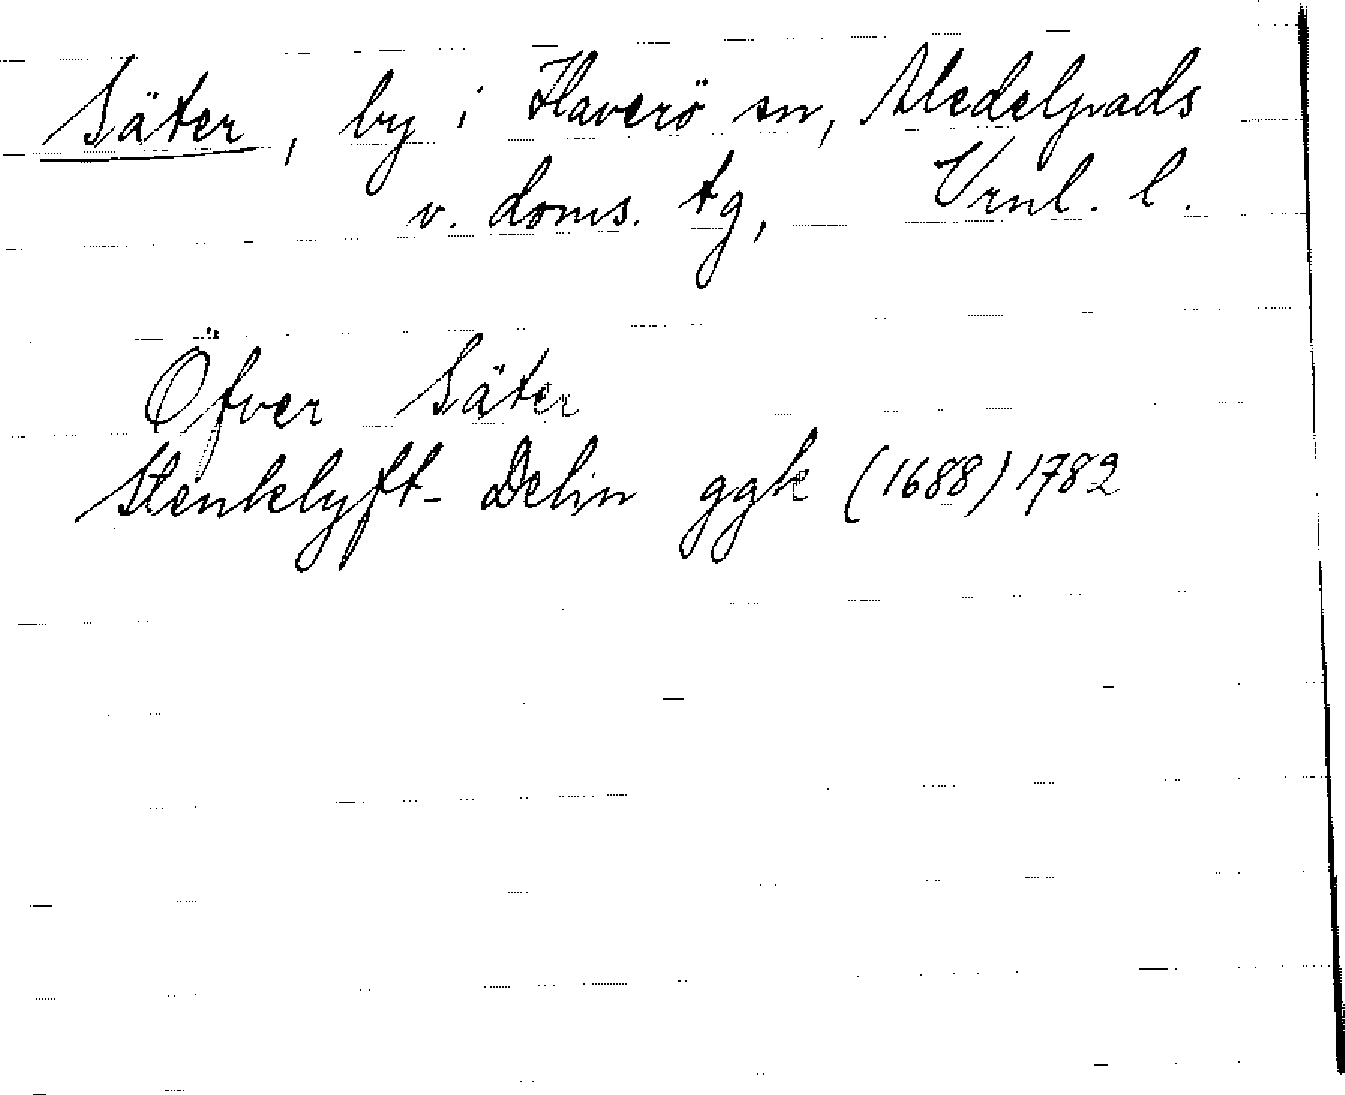 Säter, by i Haverö sn, Medelpads
v. doms. tg, Vrnl. l.
Öfver Säter
Stenklyft- Delin ggk (1688) 1782